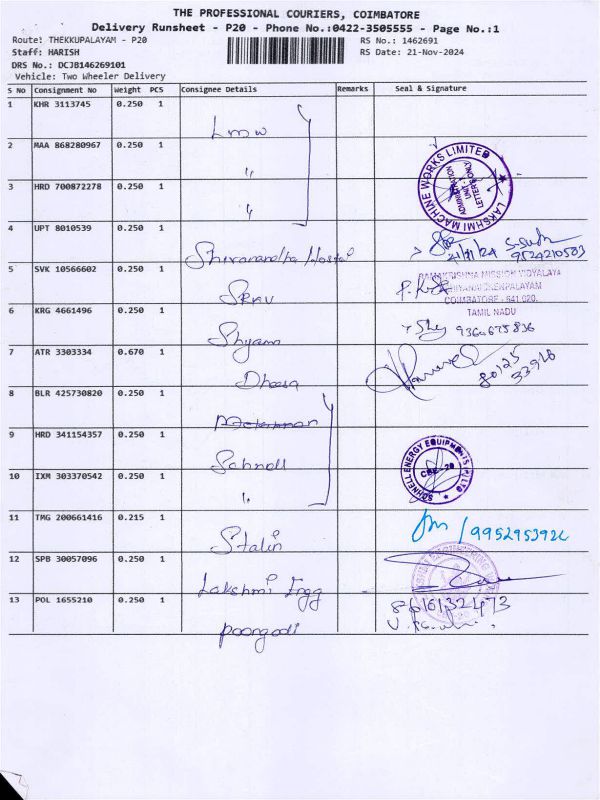 THE PROFESSIONAL COURIERS, COIMBATORE
Delivery Runsheet - P20 - Phone No.:0422-3505555 - Page No.:1
Route: THEKKUPALAYAM - P20
RS No.: 1462691
Staff: HARISH
RS Date: 21-Nov-2024
DRS No.: DCJB146269101
Vehicle: Two Wheeler Delivery
S No Consignment No Weight PCS Consignee Details Remarks Seal & Signature
1 KHR 3113745 0.250 1 Lmw
2 MAA 868280967 0.250 1 "
3 HRD 700872278 0.250 1 "
LAKSHMI MACHINE WORKS LIMITED
ADMINISTRATION
UNIT
LETTERS ONLY
4 UPT 8010539 0.250 1
21/11/24
9524210583
5 SVK 10566602 0.250 1 SRKV
RAMAKRISHNA MISSION VIDYALAYA
COIMBATORE - 641 020.
TAMIL NADU
6 KRG 4661496 0.250 1 Shyam
9360675836
7 ATR 3303334 0.670 1
80125
33926
8 BLR 425730820 0.250 1
9 HRD 341154357 0.250 1 Schnell
10 IXM 303370542 0.250 1 "
SCHNELL ENERGY EQUIPMENTS P LTD
CBE-20
11 TMG 200661416 0.215 1 Stalin
12 SPB 30057096 0.250 1 Lakshmi Engg
13 POL 1655210 0.250 1 Poongodi